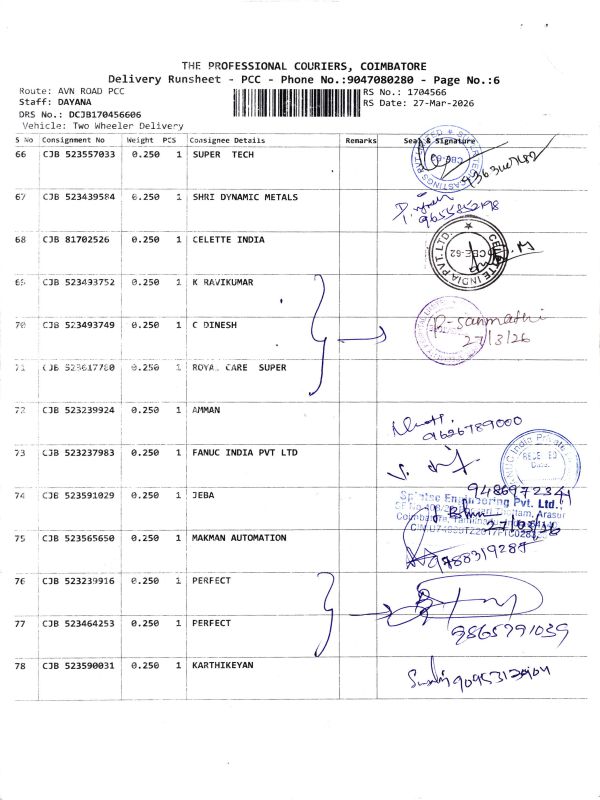 THE PROFESSIONAL COURIERS, COIMBATORE
Delivery Runsheet - PCC - Phone No.:9047080280 - Page No.:6
Route: AVN ROAD PCC
RS No.: 1704566
Staff: DAYANA
RS Date: 27-Mar-2026
DRS No.: DCJB170456606
Vehicle: Two Wheeler Delivery
S No Consignment No Weight PCS Consignee Details Remarks Seal & Signature
66 CJB 523557033 0.250 1 SUPER TECH
67 CJB 523439584 0.250 1 SHRI DYNAMIC METALS
9655852198
68 CJB 81702526 0.250 1 CELETTE INDIA
CELETTE INDIA PVT. LTD.
CBE-62
69 CJB 523493752 0.250 1 K RAVIKUMAR
70 CJB 523493749 0.250 1 C DINESH
P-sanmathi
27/3/26
71 CJB 523617780 0.250 1 ROYAL CARE SUPER
72 CJB 523239924 0.250 1 AMMAN
9626789000
73 CJB 523237983 0.250 1 FANUC INDIA PVT LTD
FANUC India Private
RECEIVED
Date
74 CJB 523591029 0.250 1 JEBA
Engineering Pvt. Ltd.
Thottam, Arasur
Coimbatore, Tamilnadu
27/03/26
75 CJB 523565650 0.250 1 MAKMAN AUTOMATION
9788319287
76 CJB 523239916 0.250 1 PERFECT
77 CJB 523464253 0.250 1 PERFECT
9865791039
78 CJB 523590031 0.250 1 KARTHIKEYAN